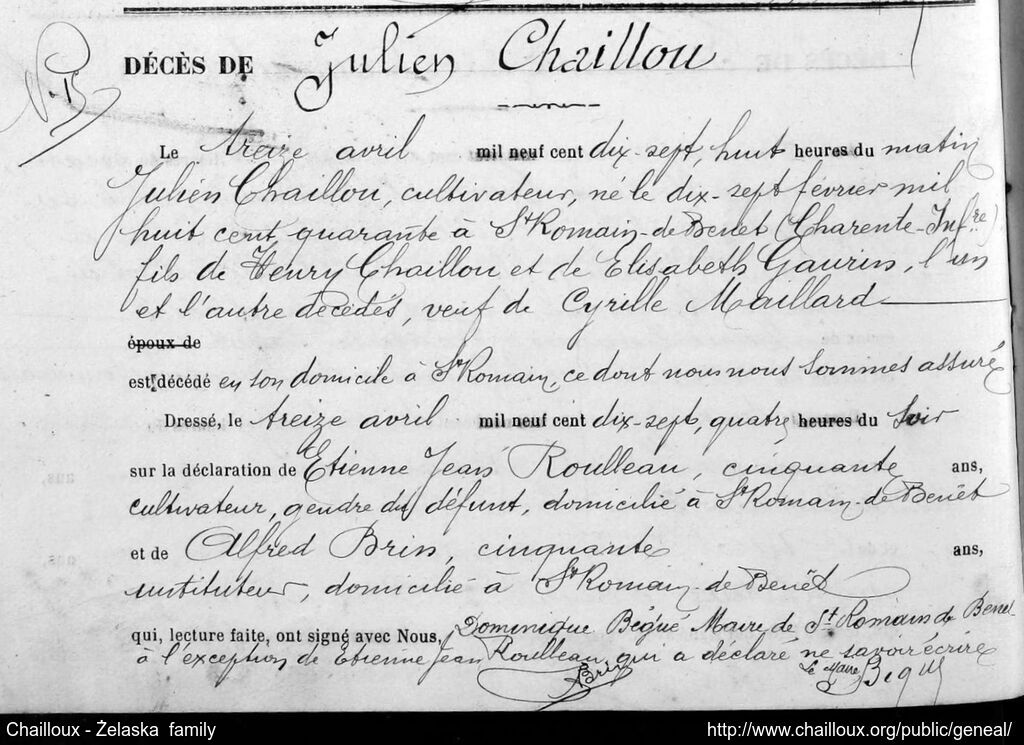 N. 15
DÉCÈS DE Julien Chaillou
Le treize avril mil neuf cent dix-sept, huit heures du matin
Julien Chaillou, cultivateur, né le dix-sept février mil
huit cent quarante à St Romain-de-Benet (Charente-Infre)
fils de Henry Chaillou et de Elisabeth Gaurin, l'un
et l'autre décédés, veuf de Cyrille Maillard
époux de
est décédé en son domicile à St Romain, ce dont nous nous sommes assuré
Dressé, le treize avril mil neuf cent dix-sept, quatre heures du soir
sur la déclaration de Etienne Jean Roulleau, cinquante ans,
cultivateur, gendre du défunt, domicilié à St Romain-de-Benêt
et de Alfred Brin, cinquante ans,
instituteur, domicilié à St Romain-de-Benêt
qui, lecture faite, ont signé avec Nous, Dominique Bégué Maire de St Romain de Benet
à l'exception de Etienne Jean Roulleau qui a déclaré ne savoir écrire
Brin Le Maire Bégué
Chailloux - Żelaska family http://www.chailloux.org/public/geneal/